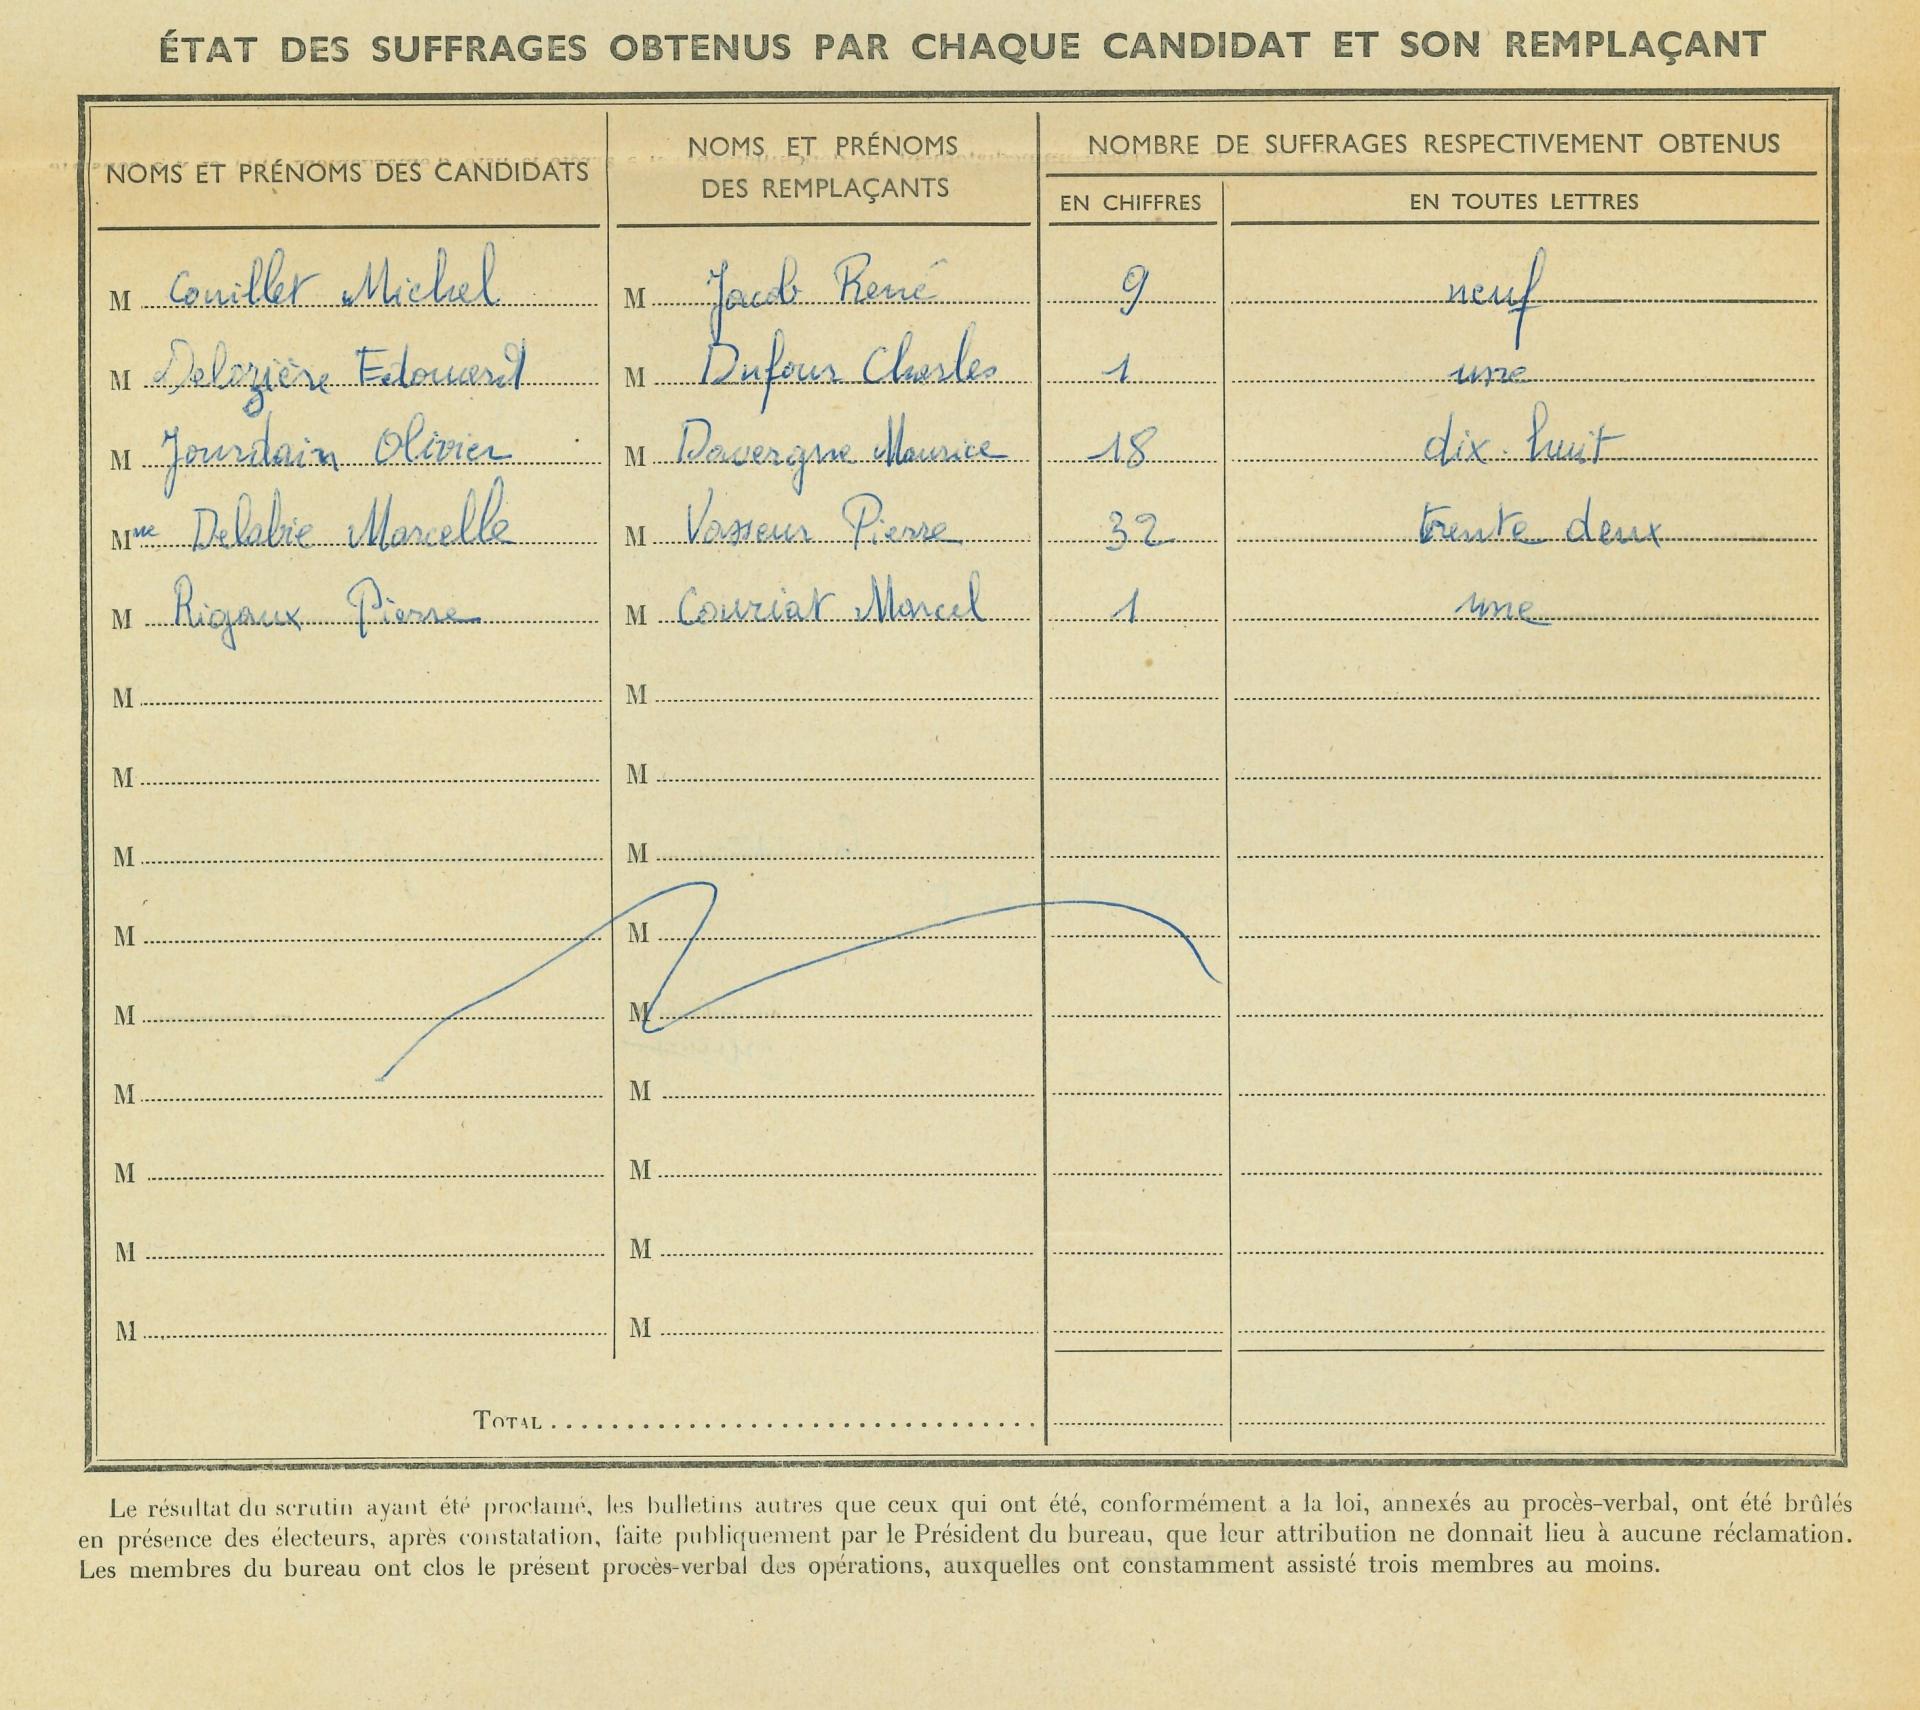 ÉTAT DES SUFFRAGES OBTENUS PAR CHAQUE CANDIDAT ET SON REMPLAÇANT
NOMS ET PRÉNOMS DES CANDIDATS
NOMS ET PRÉNOMS
DES REMPLAÇANTS
NOMBRE DE SUFFRAGES RESPECTIVEMENT OBTENUS
EN CHIFFRES
EN TOUTES LETTRES
M Couillet Michel M Jacob René 9 neuf
M Delozière Edouard M Dufour Charles 1 une
M Jourdain Olivier M Davergne Maurice 18 dix-huit
Mme Delabie Marcelle M Vasseur Pierre 32 trente deux
M Rigaux Pierre M Couriat Marcel 1 une
M M
M M
M M
M M
M M
M M
M M
M M
M M
TOTAL
Le résultat du scrutin ayant été proclamé, les bulletins autres que ceux qui ont été, conformément a la loi, annexés au procès-verbal, ont été brûlés
en présence des électeurs, après constatation, faite publiquement par le Président du bureau, que leur attribution ne donnait lieu à aucune réclamation.
Les membres du bureau ont clos le présent procès-verbal des opérations, auxquelles ont constamment assisté trois membres au moins.